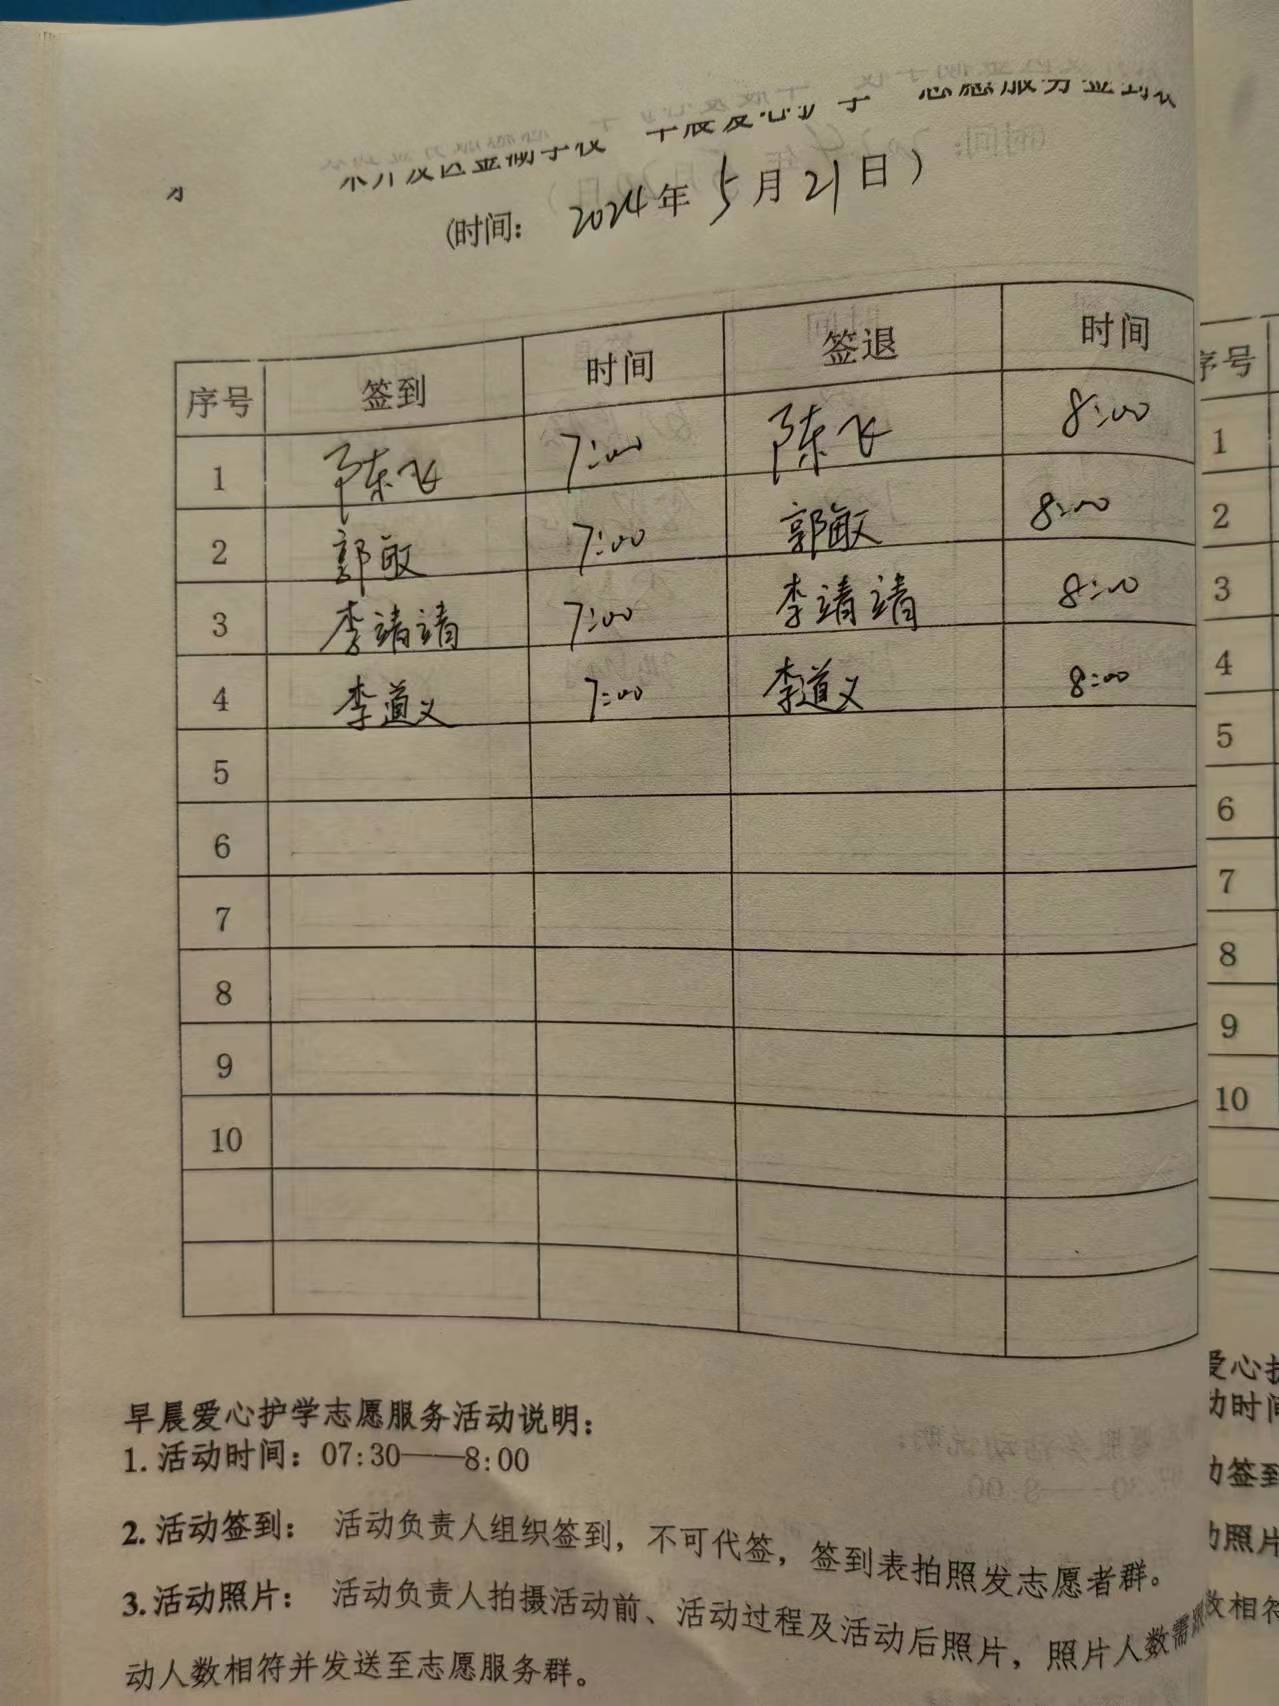 (时间: 2024年5月21日)
序号 签到 时间 签退 时间
1 陈飞 7:00 陈飞 8:00
2 郭敏 7:00 郭敏 8:00
3 李靖靖 7:00 李靖靖 8:00
4 李道义 7:00 李道义 8:00
5
6
7
8
9
10
早晨爱心护学志愿服务活动说明:
1. 活动时间: 07:30——8:00
2. 活动签到: 活动负责人组织签到, 不可代签, 签到表拍照发志愿者群。
3. 活动照片: 活动负责人拍摄活动前、活动过程及活动后照片, 照片人数需
动人数相符并发送至志愿服务群。
序号
1
2
3
4
5
6
7
8
9
10
爱心
动时间
签到
照片
相符